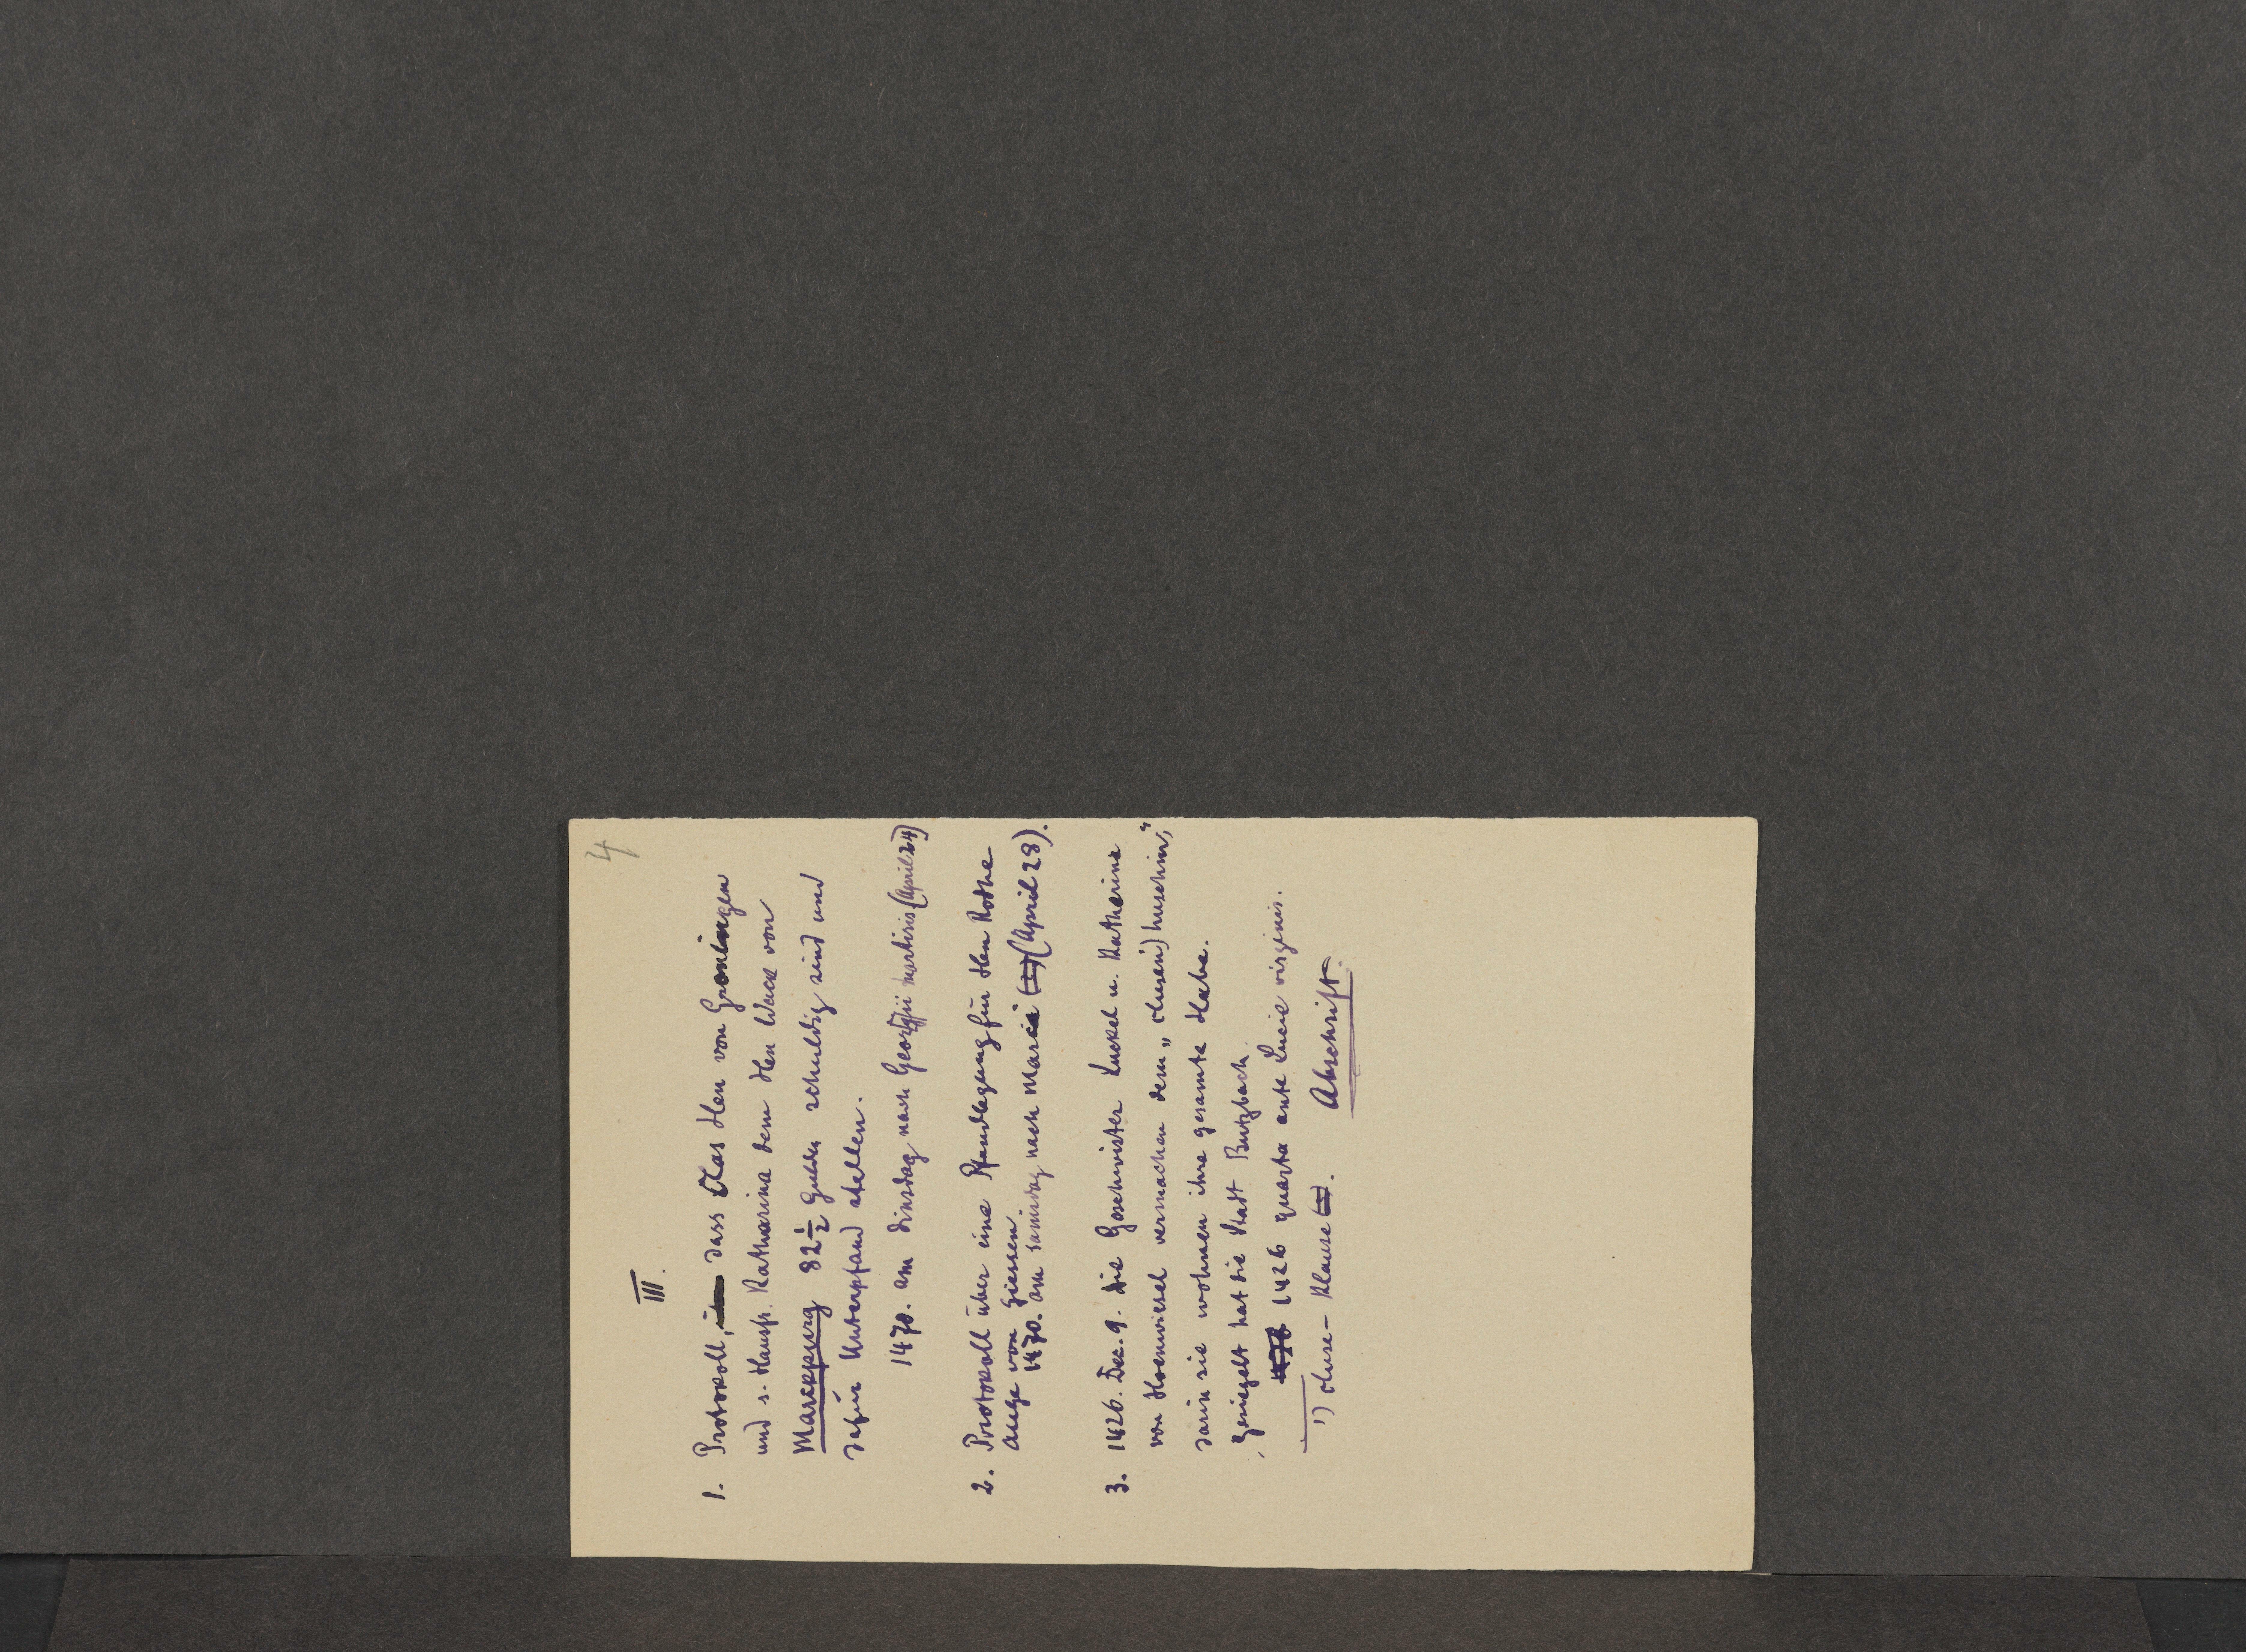 4
III.
1. Protokoll, dass Clas Hen von Groningen
und s. Hausfr. Katharina dem Hen Wack von
Marckpurg 82½ Gulden schuldig sind und
dafür Unterpfand stellen.
1470. am dinstag nach Georgii martiris (April 24)
2. Protokoll über eine Pfandlegung für Hen Rothe
auge von Giessen.
1470. am samstag nach Marci (April 28).
3. 1426. Dec. 9. Die Geschwister Luckel u. Katherine
von Hoenwiesel vermachen dem „clusen¹) huschin“,
darin sie wohnen ihre gesamte Habe.
Gesiegelt hat die Stadt Butzbach.
1426 quarta ante Lucie virginis.
¹) cluse – Klause. Abschrift.